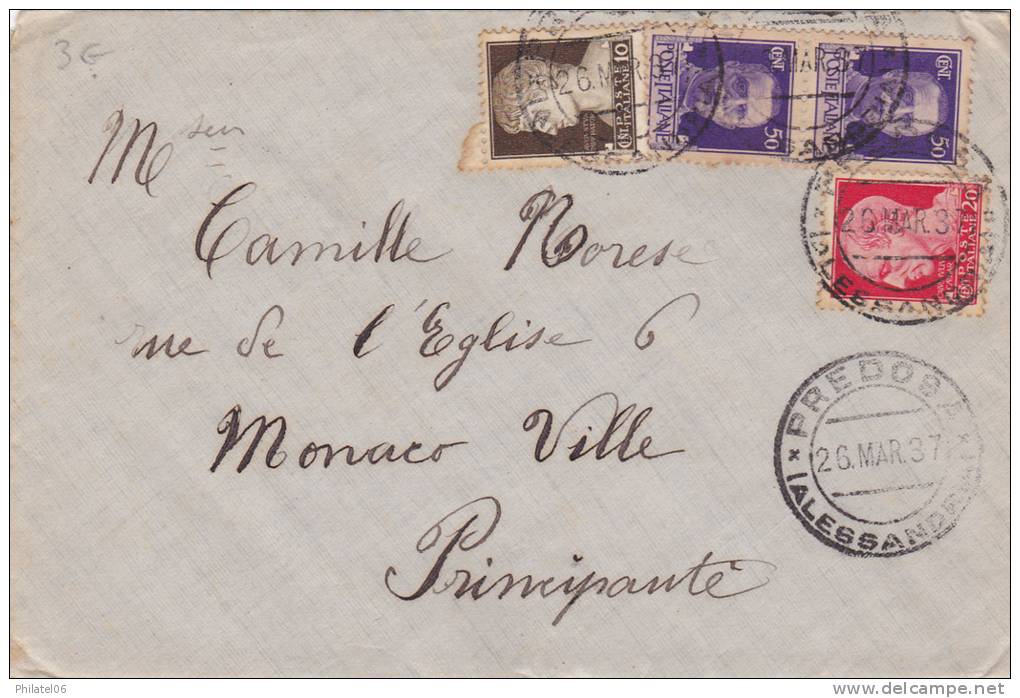 3 €
10
CENT. POSTE ITALIANE
CENT
POSTE ITALIANE
50
CENT
POSTE ITALIANE
50
26.MAR.37
MAR.37
20
POSTE ITALIANE
26.MAR.37
Mseur
Camille Morese
rue de l'Eglise 6
Monaco Ville
Principauté
PREDOSA
26.MAR.37
(ALESSANDRIA)
Philatel06
delcampe.net